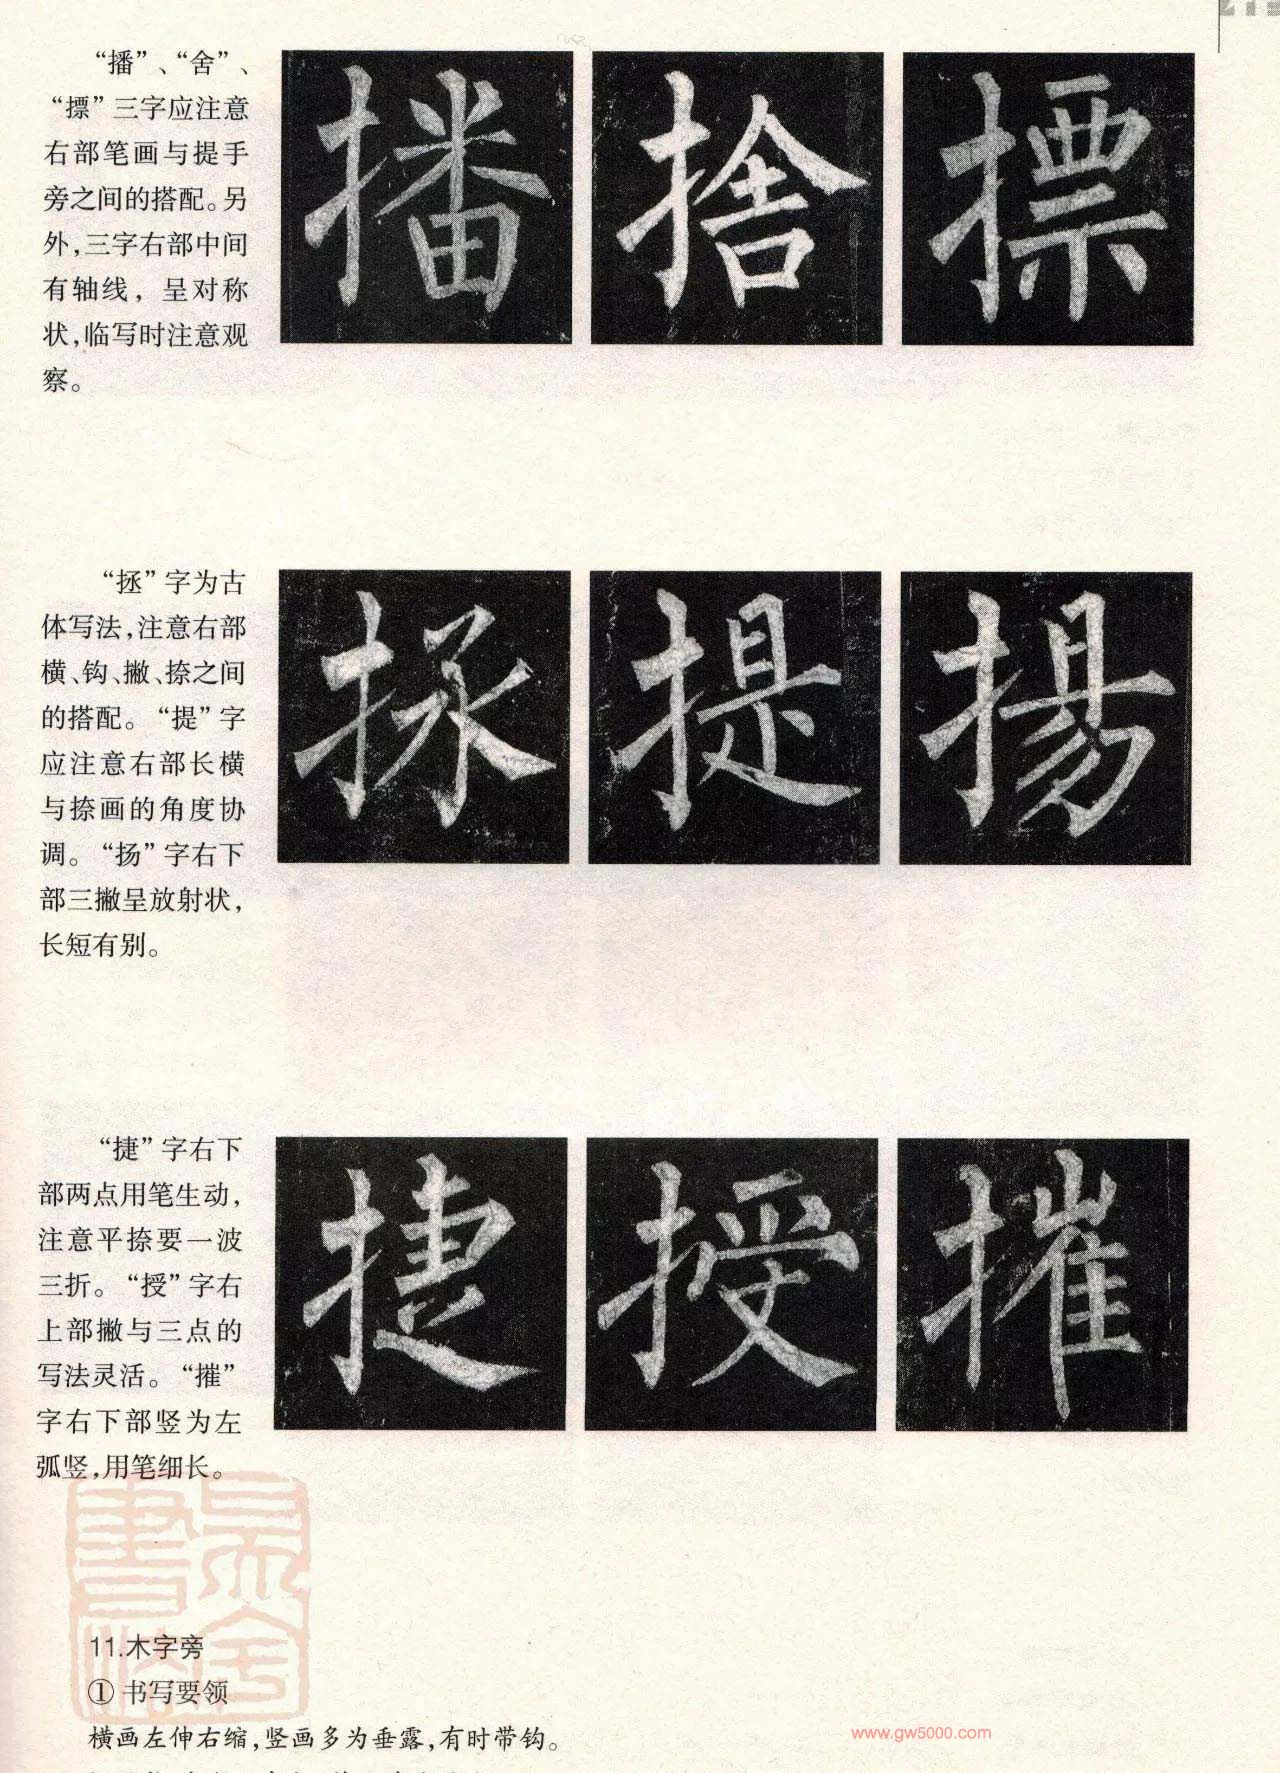 “播”、“舍”、
“摽”三字应注意
右部笔画与提手
旁之间的搭配。另
外,三字右部中间
有轴线，呈对称
状,临写时注意观
察。
播 捨 摽
“拯”字为古
体写法,注意右部
横、钩、撇、捺之间
的搭配。“提”字
应注意右部长横
与捺画的角度协
调。“扬”字右下
部三撇呈放射状，
长短有别。
拯 提 揚
“捷”字右下
部两点用笔生动，
注意平捺要一波
三折。“授”字右
上部撇与三点的
写法灵活。“摧”
字右下部竖为左
弧竖,用笔细长。
捷 授 摧
11.木字旁
① 书写要领
横画左伸右缩,竖画多为垂露,有时带钩。
www.gw5000.com